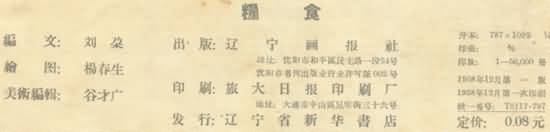 糧食
編文: 刘燊
繪图: 楊春生
美術編輯: 谷才广
出版: 辽宁画报社
地址: 沈阳市和平區民主路一段54号
沈阳市書刊出版业营业許可証003号
印刷: 旅大日报印刷厂
地址: 大連市中山區昆明街三十六号
发行: 辽宁省新华書店
开本: 787×1092
印張:
印数: 1—50,000
1958年12月第一版
1958年12月第一次印刷
統一書号: T8117·797
定价: 0.08元